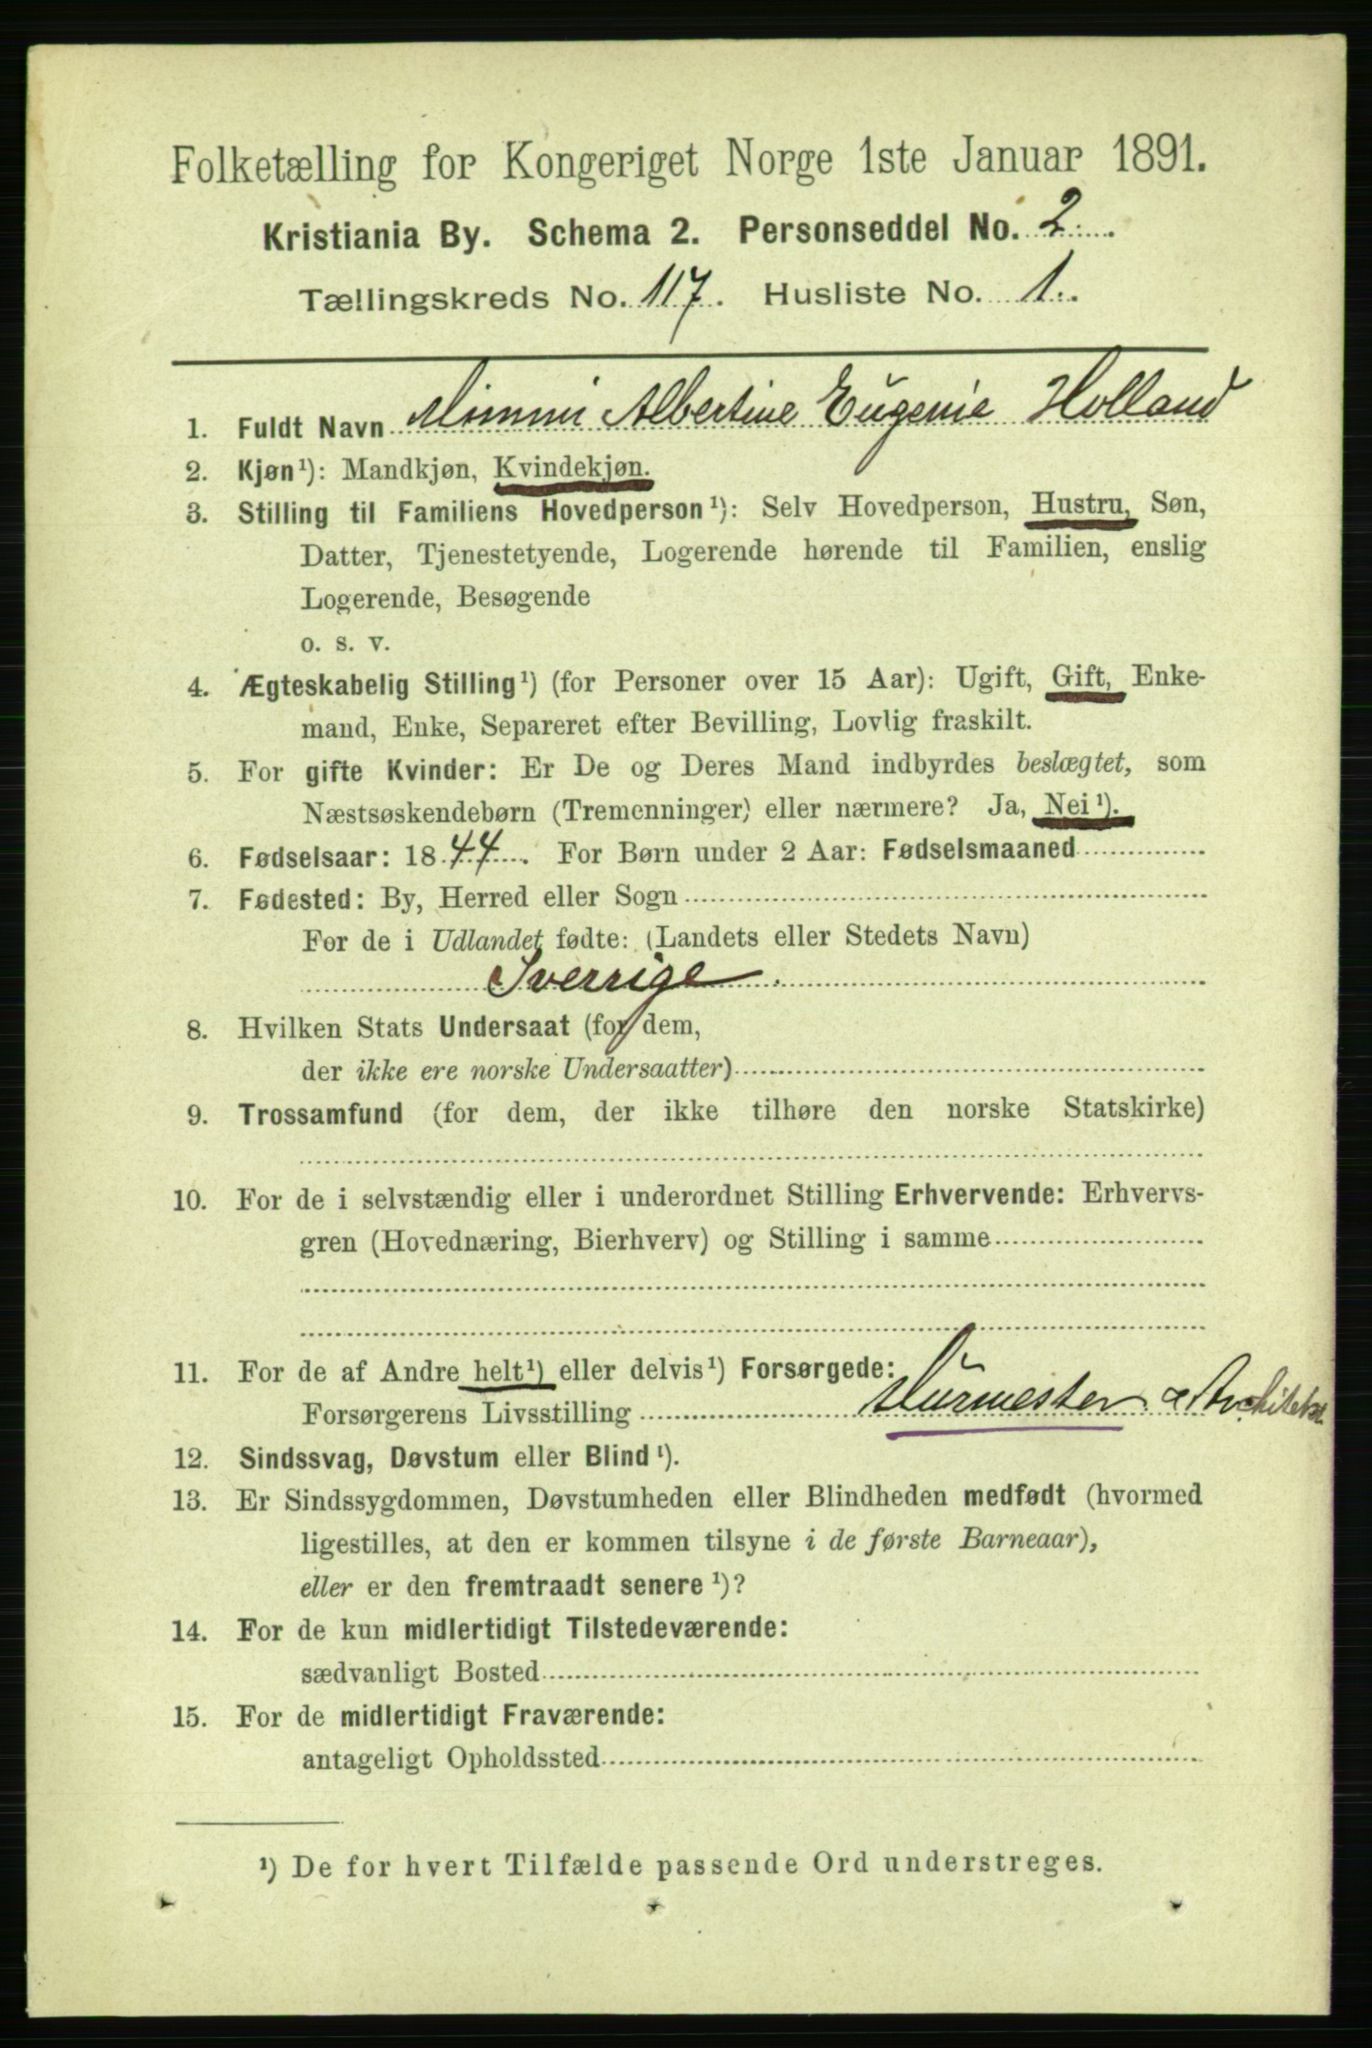 Folketælling for Kongeriget Norge 1ste Januar 1891.
Kristiania By. Schema 2. Personseddel No. 2
Tællingskreds No. 117. Husliste No. 1.
1. Fuldt Navn Mimmi Albertine Eugenie Holland
2. Kjøn¹): Mandkjøn, Kvindekjøn.
3. Stilling til Familiens Hovedperson¹): Selv Hovedperson, Hustru, Søn,
Datter, Tjenestetyende, Logerende hørende til Familien, enslig
Logerende, Besøgende
o. s. v.
4. Ægteskabelig Stilling¹) (for Personer over 15 Aar): Ugift, Gift, Enke-
mand, Enke, Separeret efter Bevilling, Lovlig fraskilt.
5. For gifte Kvinder: Er De og Deres Mand indbyrdes beslægtet, som
Næstsøskendebørn (Tremenninger) eller nærmere? Ja, Nei¹).
6. Fødselsaar: 1844. For Børn under 2 Aar: Fødselsmaaned
7. Fødested: By, Herred eller Sogn
For de i Udlandet fødte: (Landets eller Stedets Navn)
Sverrige.
8. Hvilken Stats Undersaat (for dem,
der ikke ere norske Undersaatter)
9. Trossamfund (for dem, der ikke tilhøre den norske Statskirke)
10. For de i selvstændig eller i underordnet Stilling Erhvervende: Erhvervs-
gren (Hovednæring, Bierhverv) og Stilling i samme
11. For de af Andre helt¹) eller delvis¹) Forsørgede:
Forsørgerens Livsstilling Murmester & Architekt
12. Sindssvag, Døvstum eller Blind¹).
13. Er Sindssygdommen, Døvstumheden eller Blindheden medfødt (hvormed
ligestilles, at den er kommen tilsyne i de første Barneaar),
eller er den fremtraadt senere¹)?
14. For de kun midlertidigt Tilstedeværende:
sædvanligt Bosted
15. For de midlertidigt Fraværende:
antageligt Opholdssted
¹) De for hvert Tilfælde passende Ord understreges.